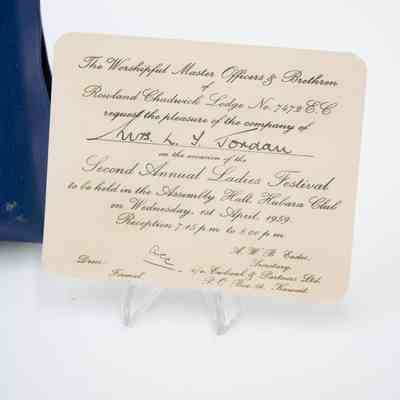 The Worshipful Master Officers & Brethren
of
Rowland Chadwick Lodge No. 7472 E.C
request the pleasure of the company of
Mrs. L. J. Jordan
on the occasion of the
Second Annual Ladies Festival
to be held in the Assembly Hall, Hubara Club
on Wednesday, 1st April, 1959.
Reception 7.15 p.m. to 8.00 p.m.
A. W. B.
Secretary.
Dress:
Formal
c/o & Partners Ltd.
P. O. Box Kuwait.